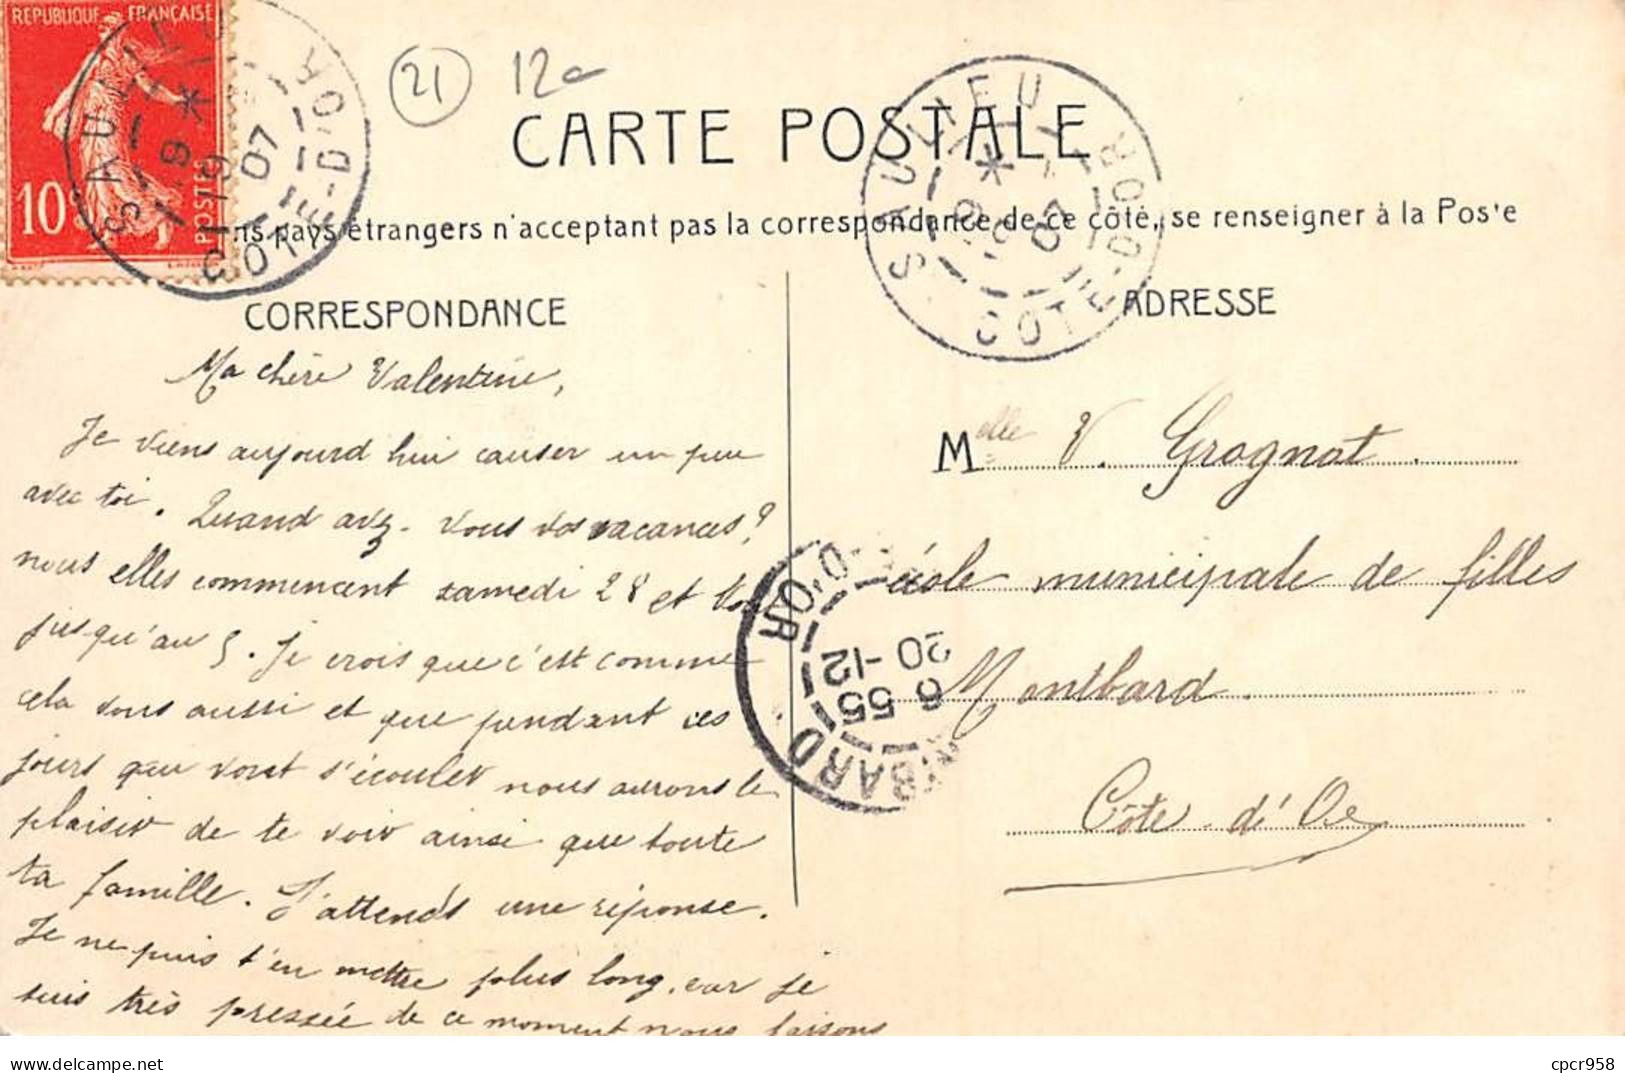 REPUBLIQUE FRANÇAISE
10c POSTES
SAULIEU
19 * 19
07
CÔTE-D'OR
21
12
CARTE POSTALE
SAULIEU
07
CÔTE-D'OR
pays étrangers n'acceptant pas la correspondance de ce côté, se renseigner à la Pos'e
CORRESPONDANCE
ADRESSE
Ma chère Valentine,
Je viens aujourd hui causer un peu
avec toi. Quand avz-vous vos vacances?
nous elles commencent samedi 28 et
jusqu'au 5. Je crois que c'est comme
cela vous aussi et que pendant ces
jours qui vont s'écouler nous aurons le
plaisir de te voir ainsi que toute
ta famille. J'attends une réponse.
Je ne puis t'en mettre plus long, car je
suis très pressée de ce moment nous faisons
Melle V. Grognat.
école municipale de filles
Montbard.
Côte-d'Or
BARD
6 55
20-12
D'OR
delcampe.net
cpcr958